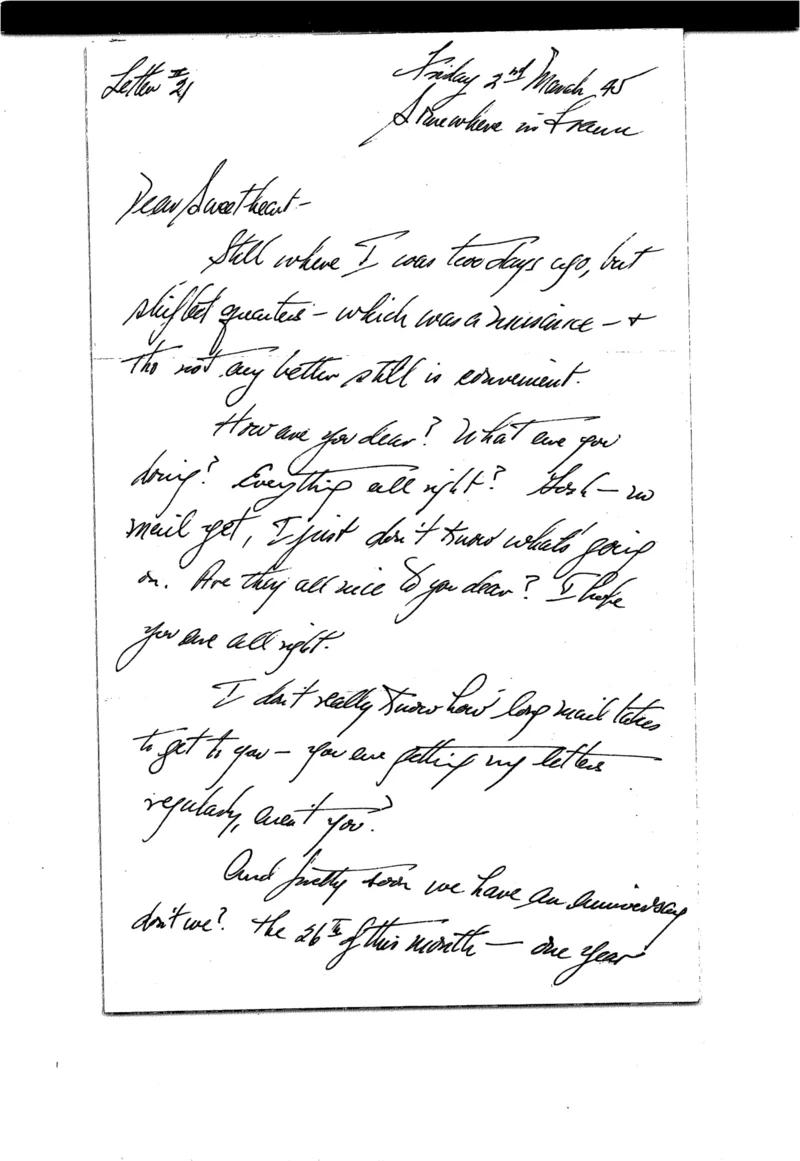 Letter # 21
Friday 2nd March 45
Somewhere in France
Dear Sweetheart –
Still where I was two days ago, but
shifted quarters – which was a nuisance – +
tho not any better still is convenient.
How are you dear? What are you
doing? Everything all right? Gosh – no
mail yet, I just don't know what's going
on. Are they all nice to you dear? I hope
you are all right.
I don't really know how long mail takes
to get to you – you are getting my letters
regularly, aren't you?
And pretty soon we have an anniversary
don't we? The 26th of this month – one year